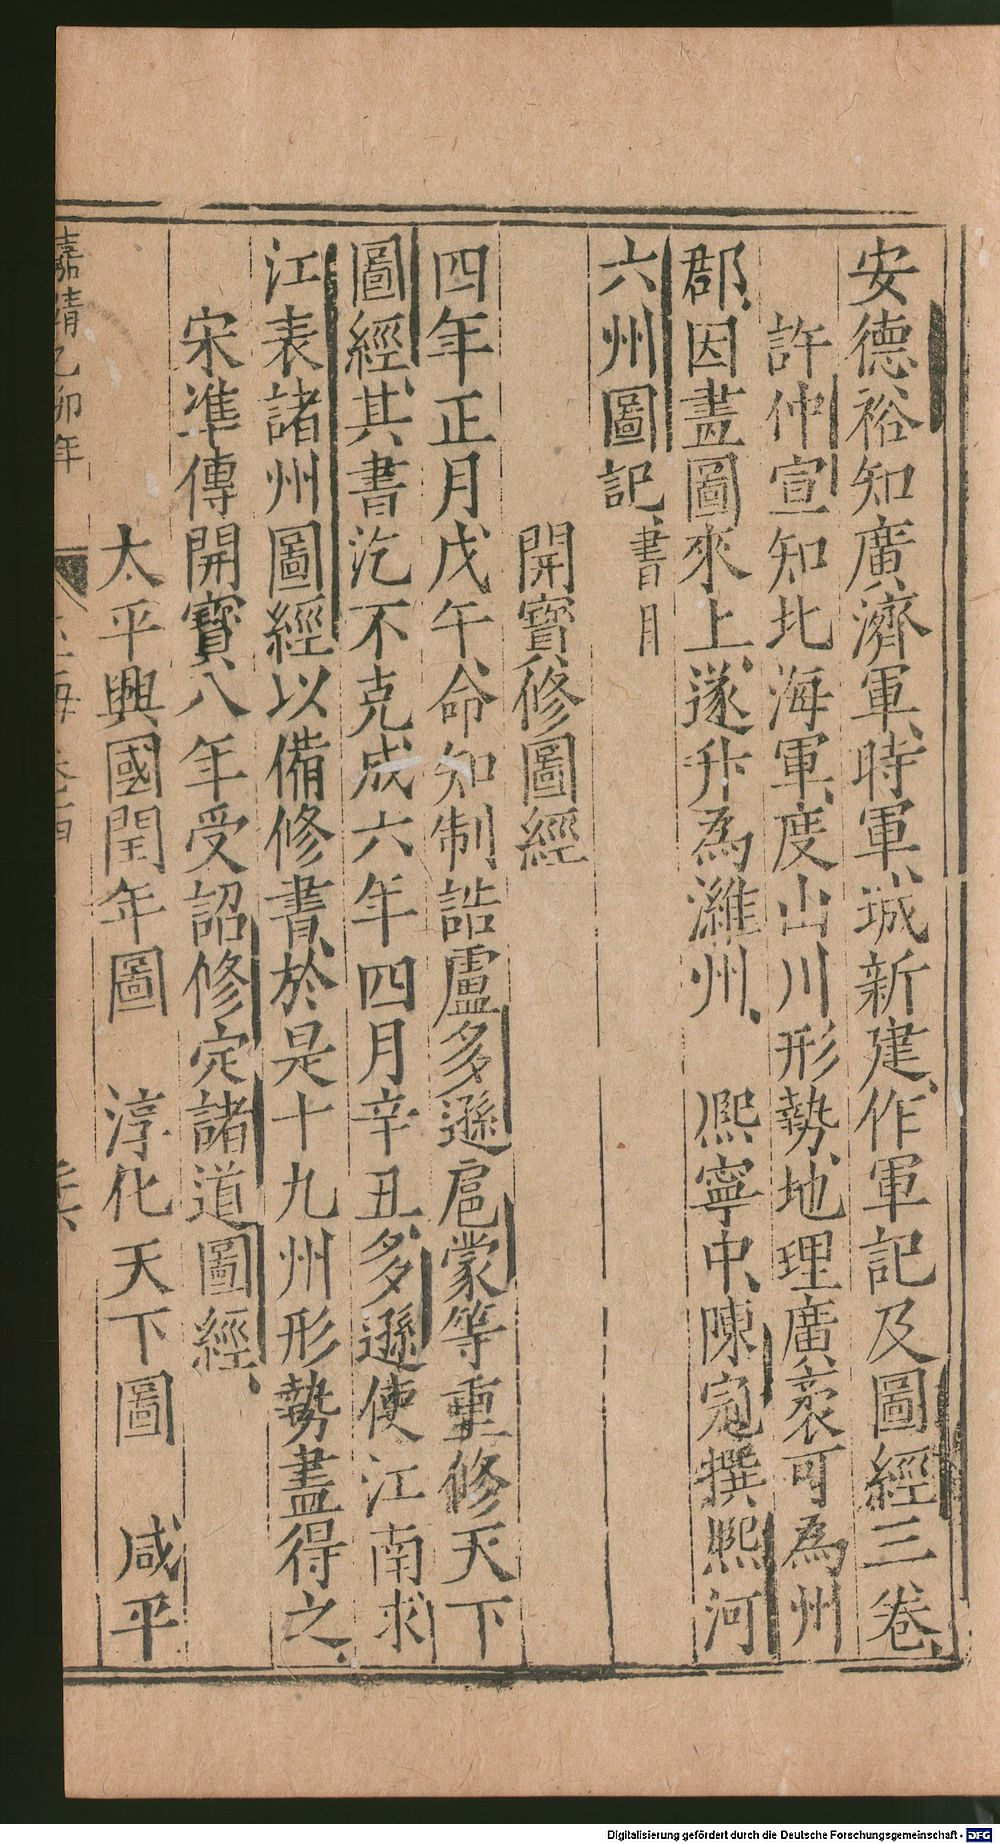 安德裕知廣濟軍時軍城新建作軍記及圖經三卷
許仲宣知北海軍度山川形勢地理廣袤可為州
郡因畫圖來上遂升為濰州　熈寧中陳冠撰熈河
六州圖記書目
開寳修圖經
四年正月戊午命知制誥盧多遜扈蒙等重修天下
圖經其書汔不克成六年四月辛丑多遜使江南求
江表諸州圖經以備修書於是十九州形勢盡得之
宋准傳開寳八年受詔修定諸道圖經
太平興國閏年圖　淳化天下圖　咸平
嘉靖乙卯年
Digitalisierung gefördert durch die Deutsche Forschungsgemeinschaft - DFG